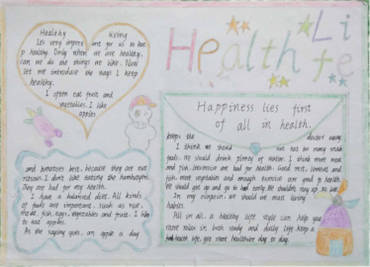 Healthy living
Let very import are for us to kee
p healthy. Only when we are healthy,
can we do the things we like. Now
let me introduce the ways I keep
healthy.
I often eat fruit and
vegetables. I like
apples
and tomatoes best, because they are nut
ritious. I don't like eating the hamburgers.
They are bad for my health.
I have a balanced diet. All kinds
of foods are important, such as rice,
meat, fish, eggs, vegetables and fruit. I like
to eat apples.
As the saying goes, an apple a day
Health Life
Happiness lies first
of all in health.
keeps the doctor away.
I think we should eat not too many snack
foods. We should drink plenty of water. I think more meat
and fish, television are bad for health. Good rest,
fish, more vegetables and enough exercise are good to health.
We should get up and go to bed early. We shouldn't stay up too late.
In my opinion, we should have good living
habits.
All in all, a healthy life style can help you
relax in both study and daily life. Keep a
health life, you more healthier day by day.